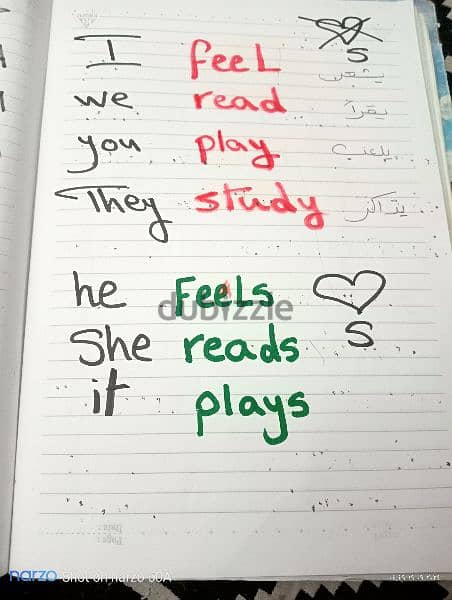 S
I feel يشعر
we read يقرأ
you play يلعب
They study يذاكر
he Feels
dubizzle
She reads S
it plays
Date:
Page:
narzo Shot on narzo 50A